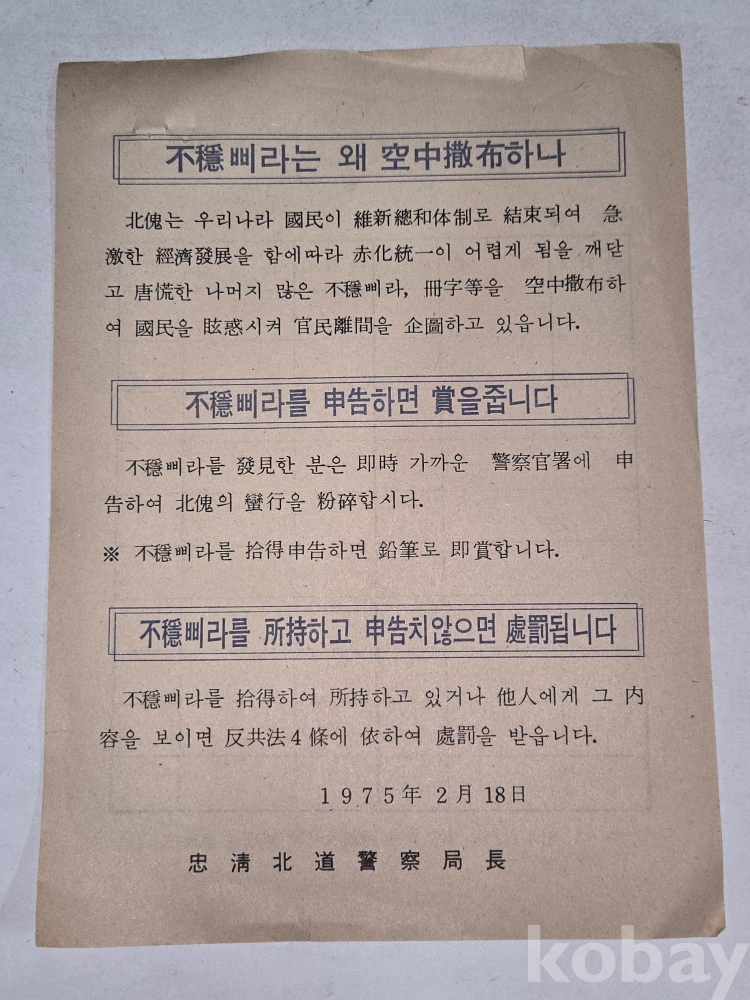 不穩삐라는 왜 空中撒布하나
北傀는 우리나라 國民이 維新總和体制로 結束되여 急
激한 經濟發展을 함에따라 赤化統一이 어렵게 됨을 깨닫
고 唐慌한 나머지 많은 不穩삐라, 冊字等을 空中撒布하
여 國民을 眩惑시켜 官民離間을 企圖하고 있읍니다.
不穩삐라를 申告하면 賞을줍니다
不穩삐라를 發見한 분은 即時 가까운 警察官署에 申
告하여 北傀의 蠻行을 粉碎합시다.
※ 不穩삐라를 拾得申告하면 鉛筆로 即賞합니다.
不穩삐라를 所持하고 申告치않으면 處罰됩니다
不穩삐라를 拾得하여 所持하고 있거나 他人에게 그 内
容을 보이면 反共法4條에 依하여 處罰을 받읍니다.
1975年 2月 18日
忠淸北道警察局長
kobay